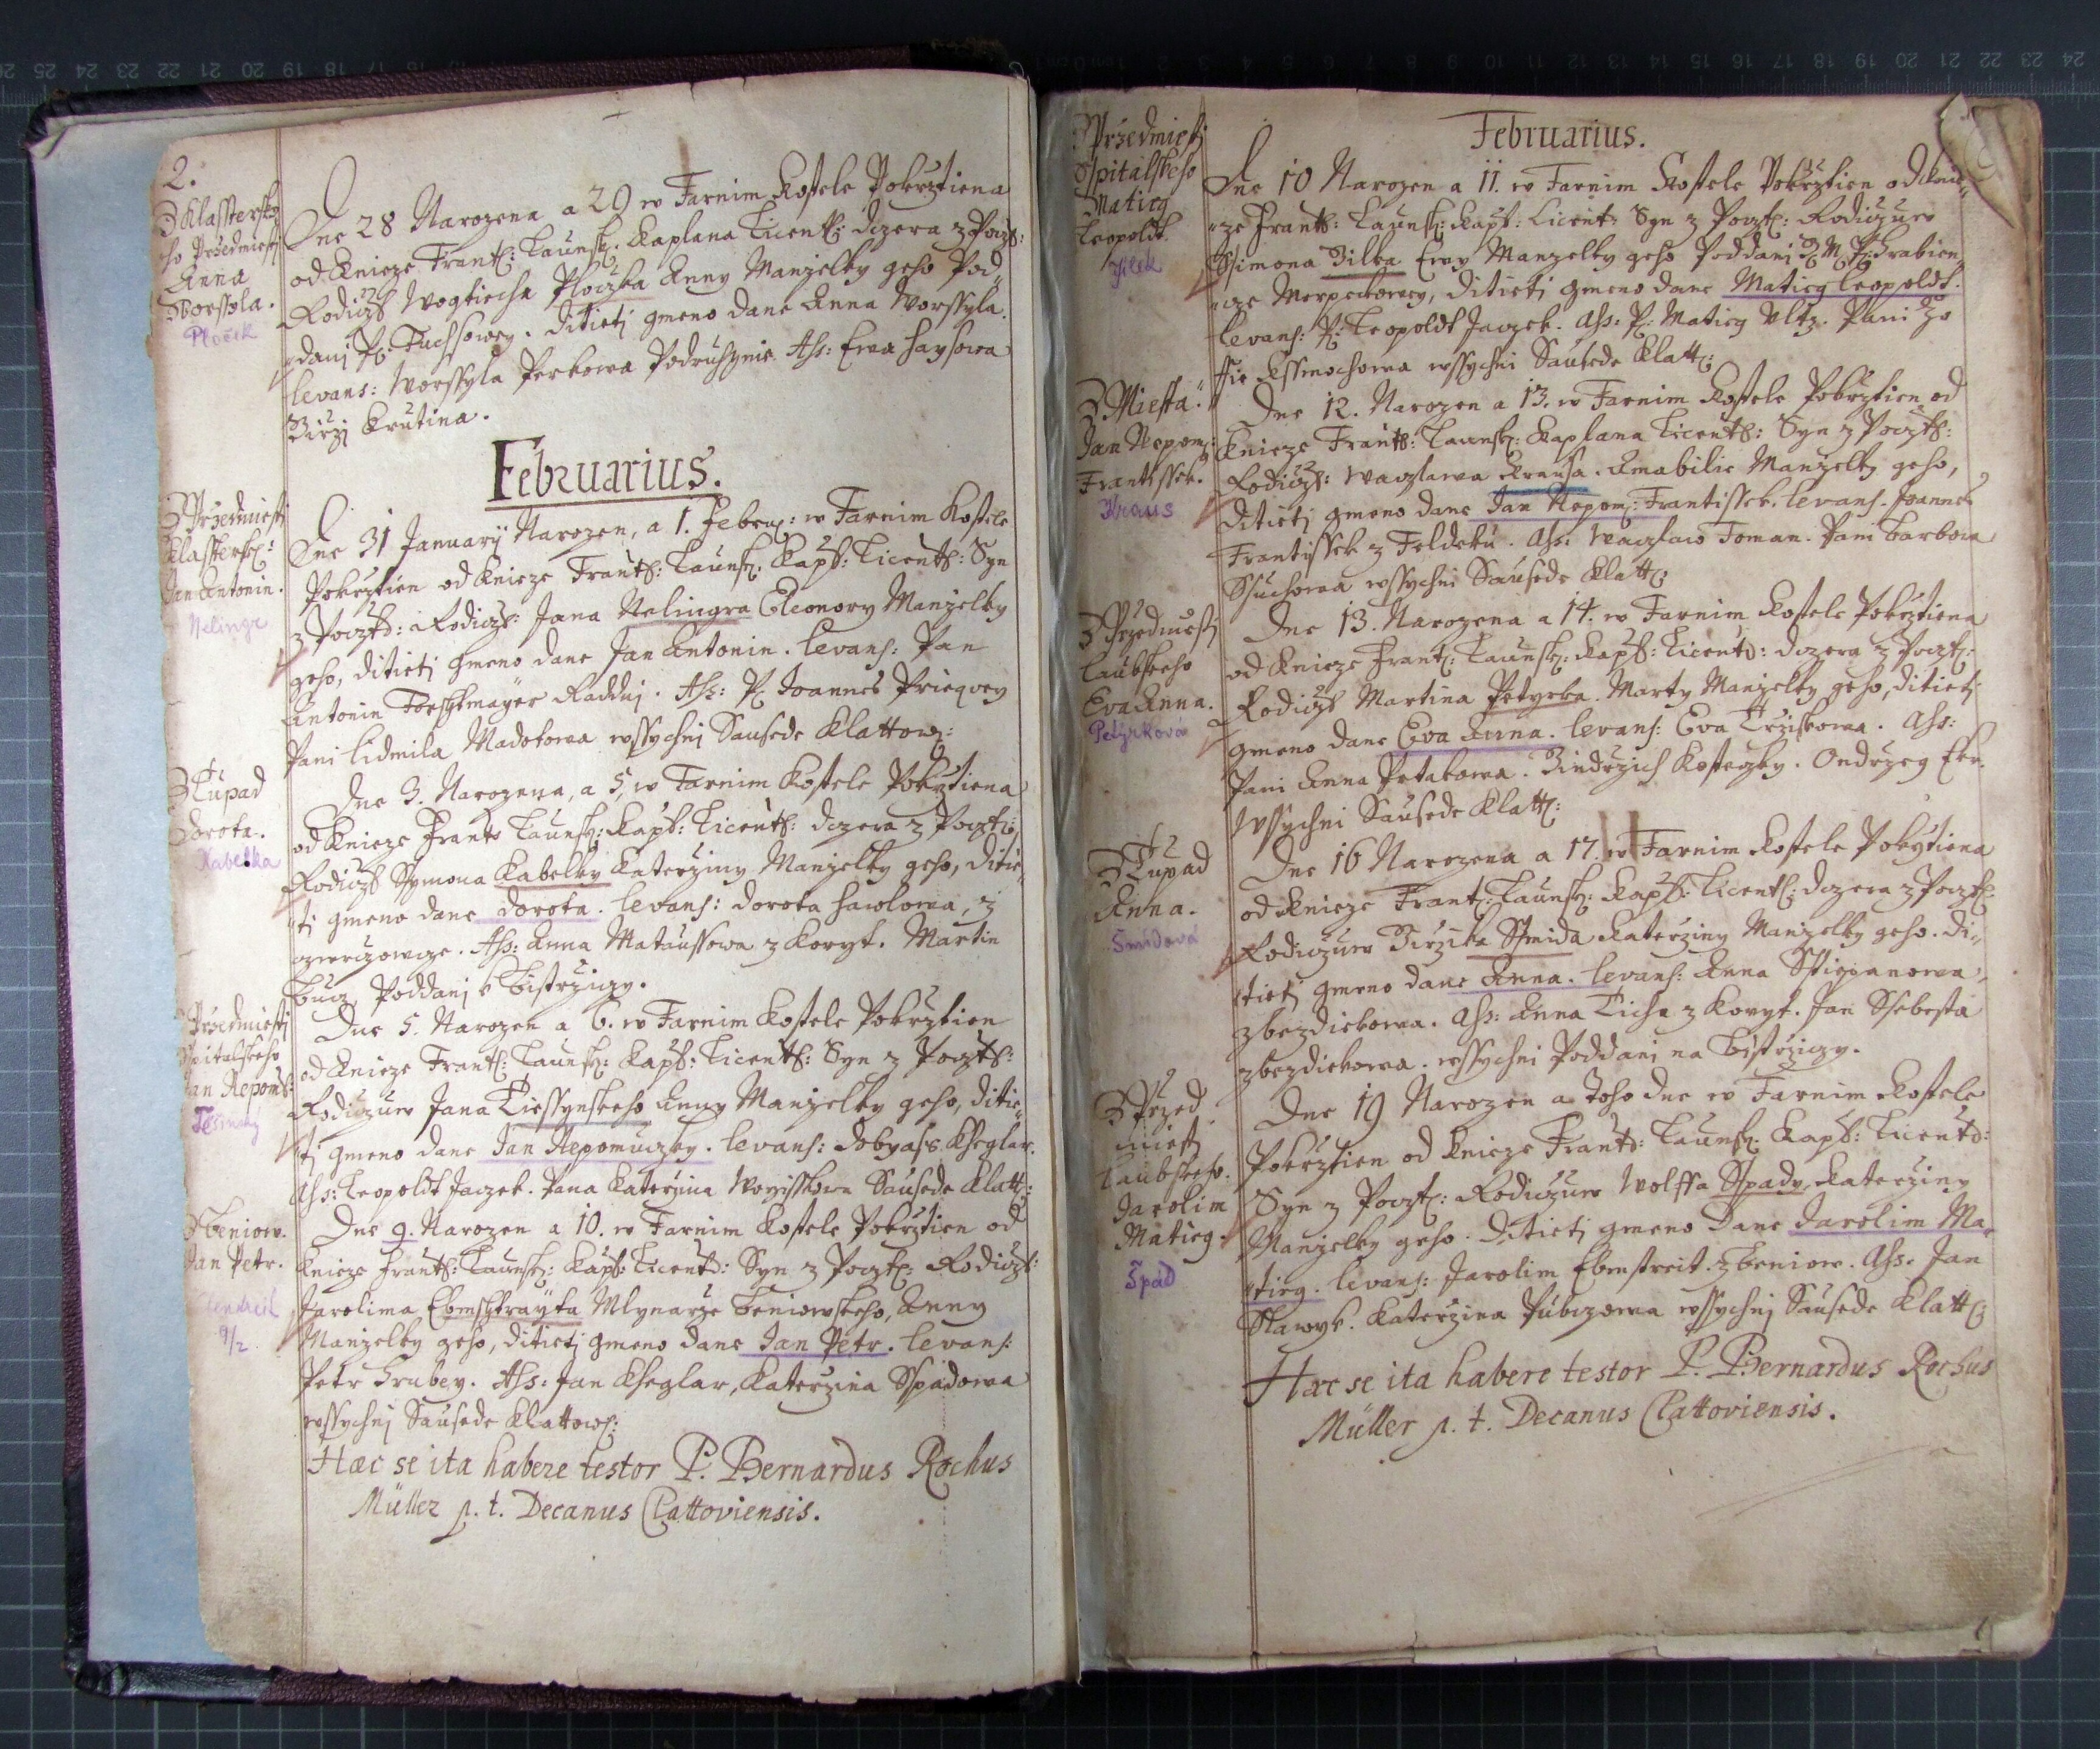 2.
Z Klassterske
ho Przedmiesti
Anna
Worssyla.
Ploček
Dne 28 Narozena a 29 w Farnim Kostele Pokrztiena
od Knieze Frantz: Taunsk: Kaplana Licent: dczera z Pocztz:
Rodiczů Wogtiecha Ploczka Anny Manzelky geho Pod„
„danj P: Fuchsowey. Ditieti gmeno dane Anna Worssyla.
Levans: Worssyla Perkowa Podruhznie Ass: Ewa Haysowa
Jirzi Krutina.
Februarius.
Z Przedmiesti
Klastersk:
Jan Antonin.
Nelingr
Dne 31 January Narozen, a 1. Febru: w Farnim Kostele
Pokrztien od Knieze Frantz: Taunsk: Kapl: Licents: Syn
z Pocztz: Rodicz: Jana Nelingra Eleonory Manzelky
geho, ditieti gmeno dane Jan Antonin. Levans: Pan
Antonin Forchtmayer Raddnj. Ass: P: Joannes Priequey
Pani Lidmila Madokowa wssychni Sausede Klattow:
Z Lupad
Dorota.
Kabelka
Dne 3. Narozena, a 5, w Farnim Kostele Pokrztiena
od Knieze Frantz Taunsk: Kapl: Licents: dczera z Pocztz:
Rodiczů Symona Kabelky Katerziny Manzelky geho, ditie„
„ti gmeno dane Dorota. Levans: Dorota Hawlowa, z
Ass: Anna Mataussowa z Koryt. Martin
Poddanj k Bistrziczy.
Przedmiesti
Spitalskeho
Jan Nepoms:
Těšínský
Dne 5. Narozen a 6. w Farnim Kostele Pokrztien
od Knieze Frantz: Taunsk: Kapl: Licents: Syn z Pocztz:
Rodiczuw Jana Tiessynskeho Anny Manzelky geho, ditie„
„ti gmeno dane Jan Nepomuczky. Levans: Tobyass Kheglar.
Ass: Leopoldt Jaczek. Pana Katerzina Wogisskowa Sausede Klatt:
Z Beniow.
Jan Petr.
9/2
Dne 9. Narozen a 10. w Farnim Kostele Pokrztien od
Knieze Frantz: Taunsk: Kapl: Licents: Syn z Pocztz: Rodicz:
Jarolima Ebmstrayta Mlynarze Beniowskeho, Anny
Manzelky geho, ditieti gmeno dane Jan Petr. Levans:
Petr Hrubey. Ass: Jan Kheglar, Katerzina Sspadowa
wssychni Sausede Klattows:
Hæc se ita habere testor P. Bernardus Rochus
Müller p. t. Decanus Clattoviensis.
Februarius.
Z Przedmiesti
Spitalskeho
Matieg
Leopoldt.
Jílek
Dne 10 Narozen a 11. w Farnim Kostele Pokrztien od Knie„
„ze Frantz: Taunsk: Kapl: Licent: Syn z Pocztz: Rodiczuw
Ssimona Jilka Ewy Manzelky geho Poddanj J. M. P: Hrabien„
„cze Morzinowey, ditieti gmeno dane Matieg Leopoldt.
Levans: P: Leopoldt Jaczek. Ass: P: Matieg Ultz. Pani Zo
ffie Essmochowa wssychni Sausede Klatt:
Z Miesta.
Jan Nepom:
Frantissek.
Kraus
Dne 12. Narozen a 13. w Farnim Kostele Pokrztien od
Knieze Frants: Taunsk: Kaplana Licents: Syn z Pocztz:
Rodicz: Waczlawa Krausa. Amabilie Manzelky geho,
ditieti gmeno dane Jan Nepom: Frantissek. Levans. Joannes
Frantissek z Feldeku. Ass: Waczlaw Toman. Pani Barbora
Ssuchowa wssychni Sausede Klatt:
Z Przedmiesti
Laubskeho
Eva Anna.
Petyrková
Dne 13. Narozena a 14. w Farnim Kostele Pokrztiena
od Knieze Frant: Taunsk: Kapl: Licents: dczera z Pocztz:
Rodiczů Martina Petyrka. Marty Manzelky geho, ditieti
gmeno dane Eva Anna. Levans: Eva Trziskowa. Ass:
Pani Anna Ptakowa. Jindrzich Kosteczky. Ondrzeg Eks.
Wssychni Sausede Klatt:
Z Lupad
Anna.
Šmídová
Dne 16 Narozena a 17. w Farnim Kostele Pokrztiena
od Knieze Frant: Taunsk: Kapl: Licents: dczera z Pocztz:
Rodiczuw Jirzika Ssmida Katerziny Manzelky geho. di„
„tieti gmeno dane Anna. Levans: Anna Sstiepanowa,
z Bezdiekowa. Ass: Anna Ticha z Koryt. Jan Ssebesta
z Bezdiekowa. wssychni Poddani na Bistrziczy.
Z Przed
miesti
Laubskeho.
Jarolim
Matieg.
Špád
Dne 19 Narozen a Toho dne w Farnim Kostele
Pokrztien od Knieze Frants: Taunsk: Kapl: Licents:
Syn z Pocztz: Rodiczuw Wolffa Sspady. Katerziny
Manzelky geho. Ditieti gmeno dane Jarolim Ma„
„tieg. Levans: Jarolim Ebmstreit. z Beniow. Ass. Jan
Slawyk. Katerzina Pubczowa wssychni Sausede Klatt:
Hæc se ita habere testor P. Bernardus Rochus
Müller p. t. Decanus Clattoviensis.